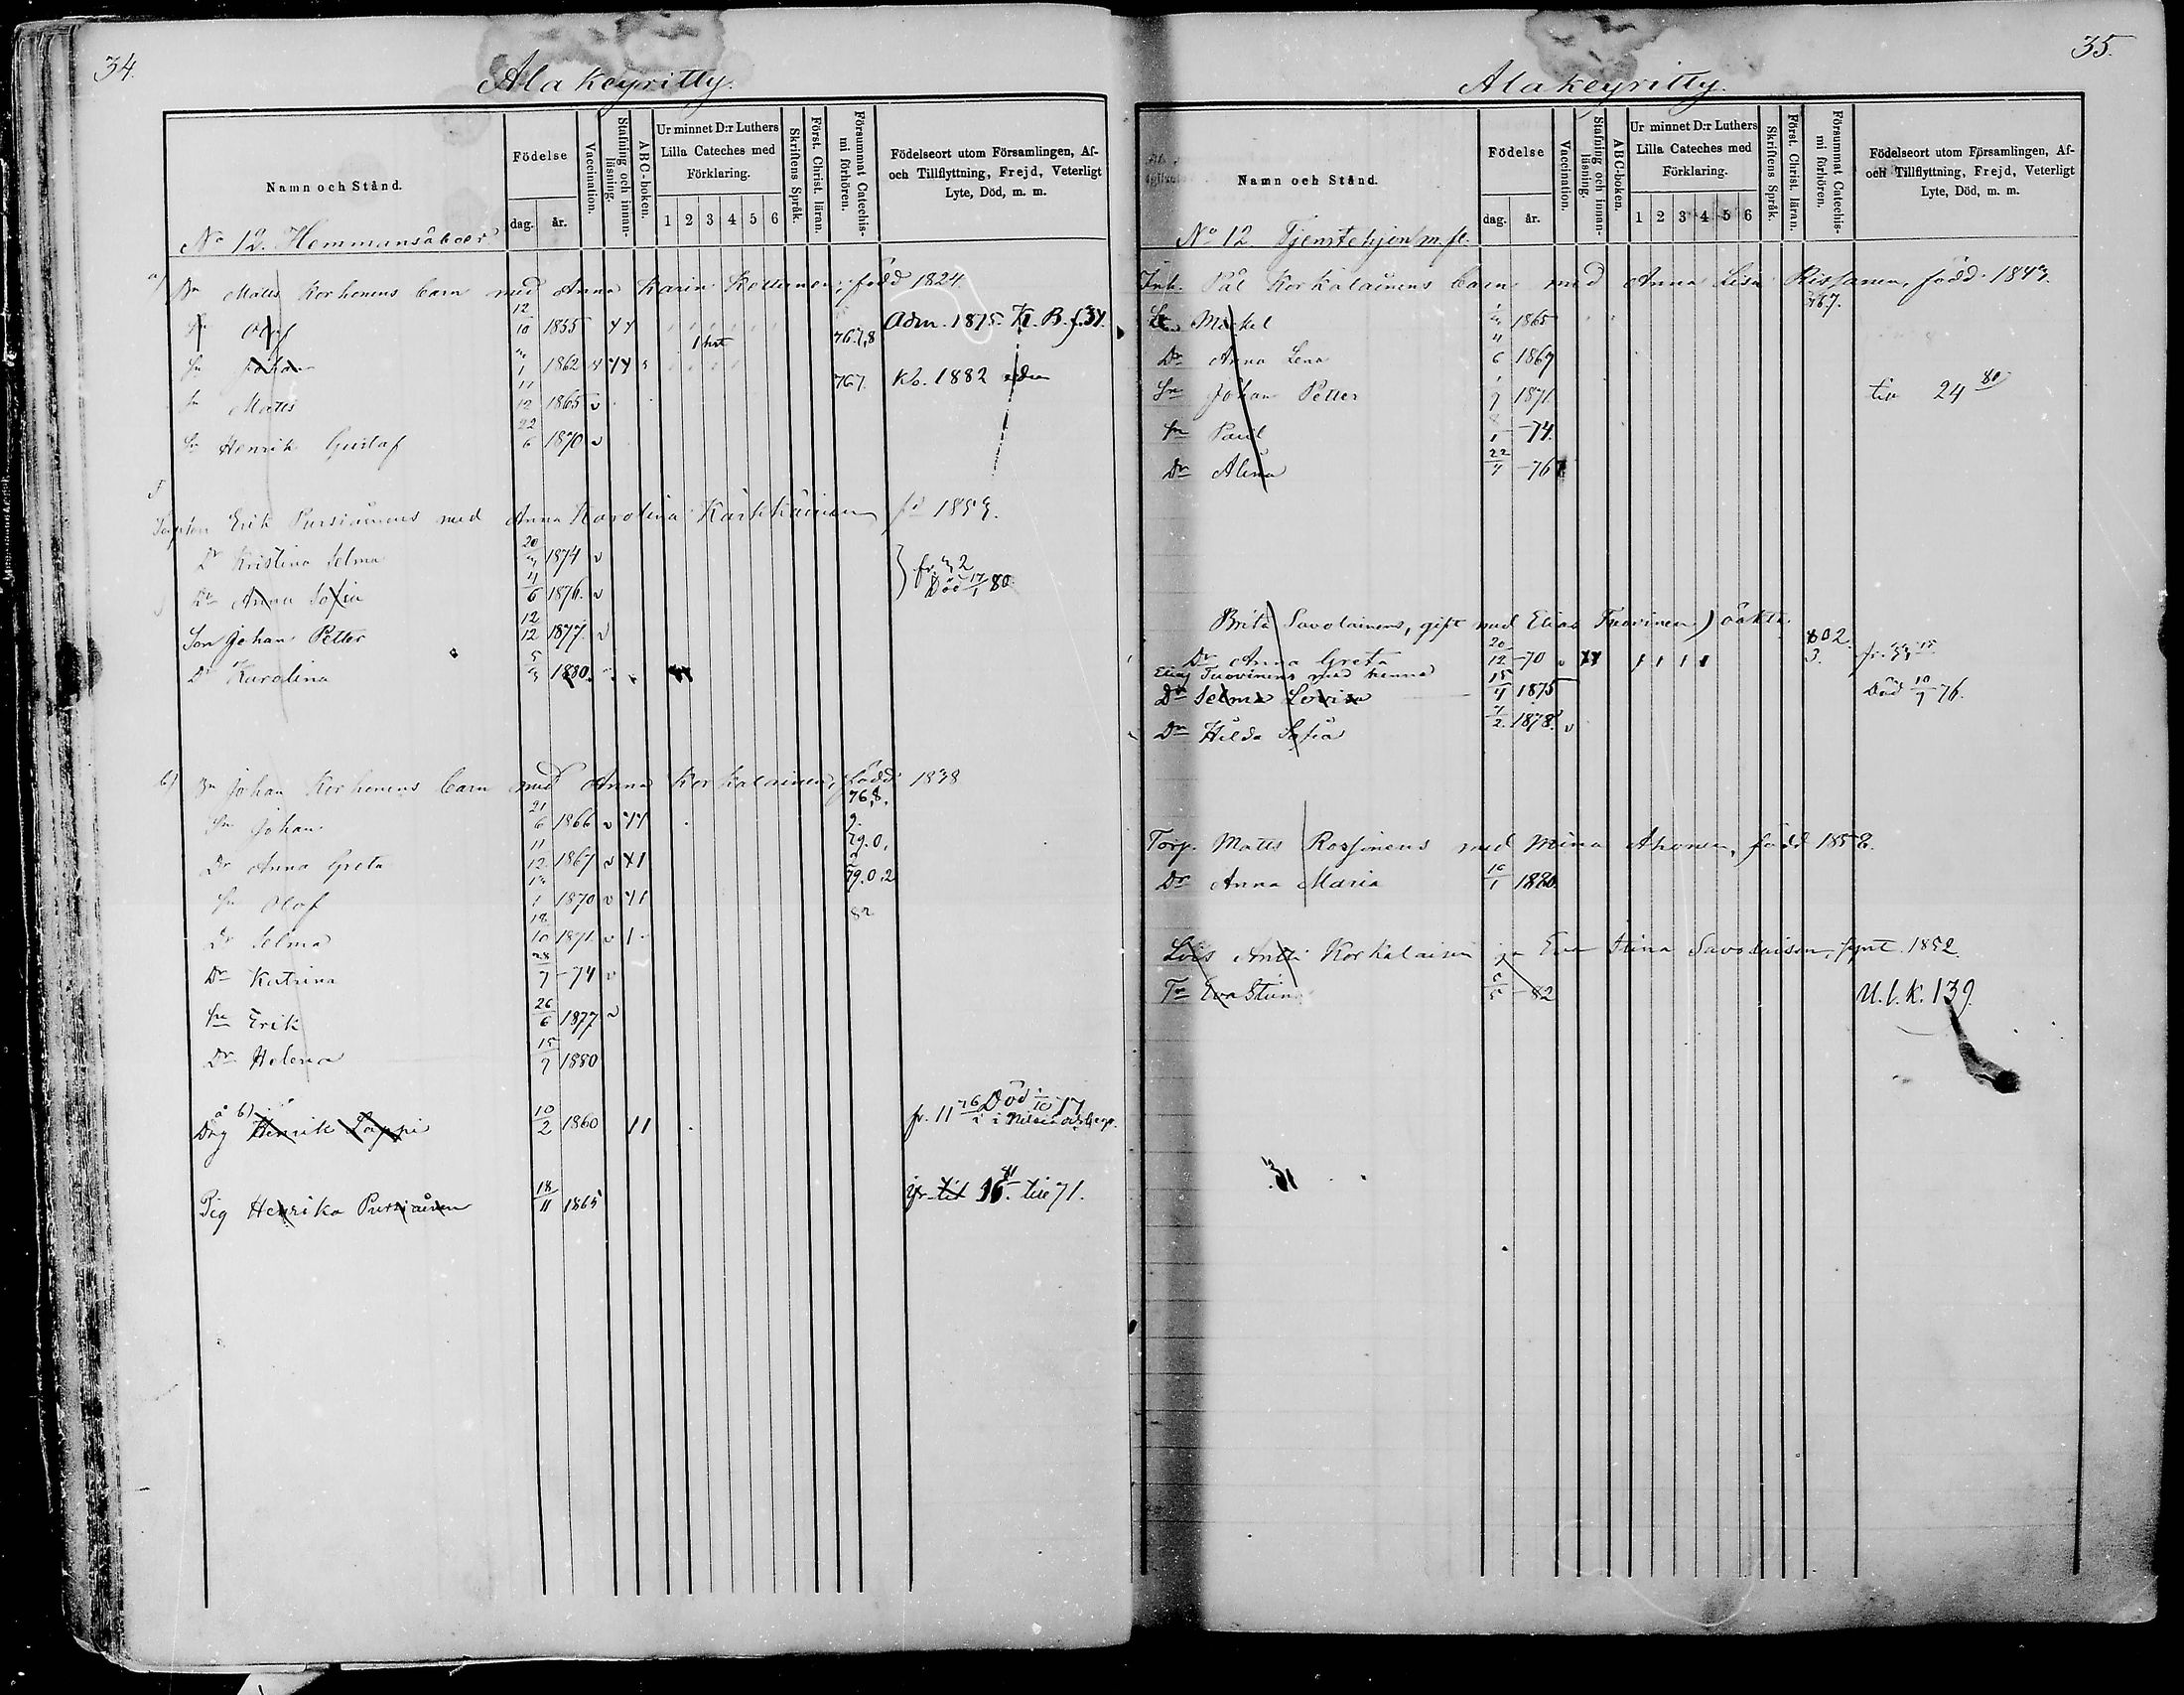 34.
Ala keyritty.
Namn och Stånd.
Födelse
dag. år.
Vaccination.
Stafning och innanläsning.
ABC-boken.
Ur minnet D:r Luthers Lilla Cateches med Förklaring.
1 2 3 4 5 6
Skriftens Språk.
Först. Christ. läran.
Försummat Catechismi förhören.
Födelseort utom Församlingen, Af- och Tillflyttning, Frejd, Veterligt Lyte, Död, m. m.
No 12. Hemmansåboer
a) Bn Matts Korhonens barn med Anna Karin född 1824.
Sn Olof 12/10 1855 76.7,8 Adm. 1875. K. B. f. 34.
Sn Johan 1862 767. Kb. 1882
Sn Matts 11/12 1865 v
Sn Henrik Gustaf 22/6 1870 v
Erik Pursiainens med Anna Karolina Kärkkäinen
Dr Kristina Selma 20/3 1874 v
Dr Anna Sofia 4/6 1876. v Död 17/1 80.
Son Johan Petter 12/12 1877. v
Dr Karolina 5/3 1880.
b) Bn Johan Korhonens barn med Anna Korkalainen, född 1838
Sn Johan 21/6 1866 v 76,8.
Dr Anna Greta 11/12 1867 v 79.0,
Sn Olof 1870 v 79.0.2
Dr Selma 18/10 1871. v 82
Dr Katrina 28/7 -74 v
Sn Erik 26/6 1877 v
Dr Helena 15/7 1880
å b)
Drg Henrik Lappi 10/2 1860 fr. 11 Död
Pig Henrika Pursiainen 18/11 1865 till 71.
35.
Ala keyritty.
Namn och Stånd.
Födelse
dag. år.
Vaccination.
Stafning och innanläsning.
ABC-boken.
Ur minnet D:r Luthers Lilla Cateches med Förklaring.
1 2 3 4 5 6
Skriftens Språk.
Först. Christ. läran.
Försummat Catechismi förhören.
Födelseort utom Församlingen, Af- och Tillflyttning, Frejd, Veterligt Lyte, Död, m. m.
No 12 Tjenstehjon m. fl.
Inh. Pål Korkalainens barn med Anna Lisa Rissanen, född 1843.
Mickel 1865
Dr Anna Lena 4/6 1867
Sn Johan Petter 1/7 1871 till 24 80
Sn Paul 8/1 -74.
Dr Alina 22/7 -76
Brita Savolainens, gift med Elias Tuovinen) oäkta
Dr Anna Greta 20/12 -70 v
Elias Tuovinens med henne
Dr Selma Lovisa 15/4 1875 Död 10/7 76.
Dr Hilda Sofia 7/2 1878. v
Torp. Matts Rossinens med Mina Ahonen, född 1858.
Dr Anna Maria 16/1 1880.
Lois Antti Korkalaisen ja Eva Stina Savolaisen, synt. 1852.
Tr Eva Stina 6/5 -82 U. l. K. 139.